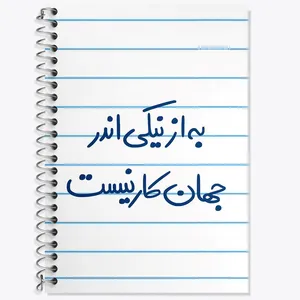 به از نیکی اندر
جهان کار نیست